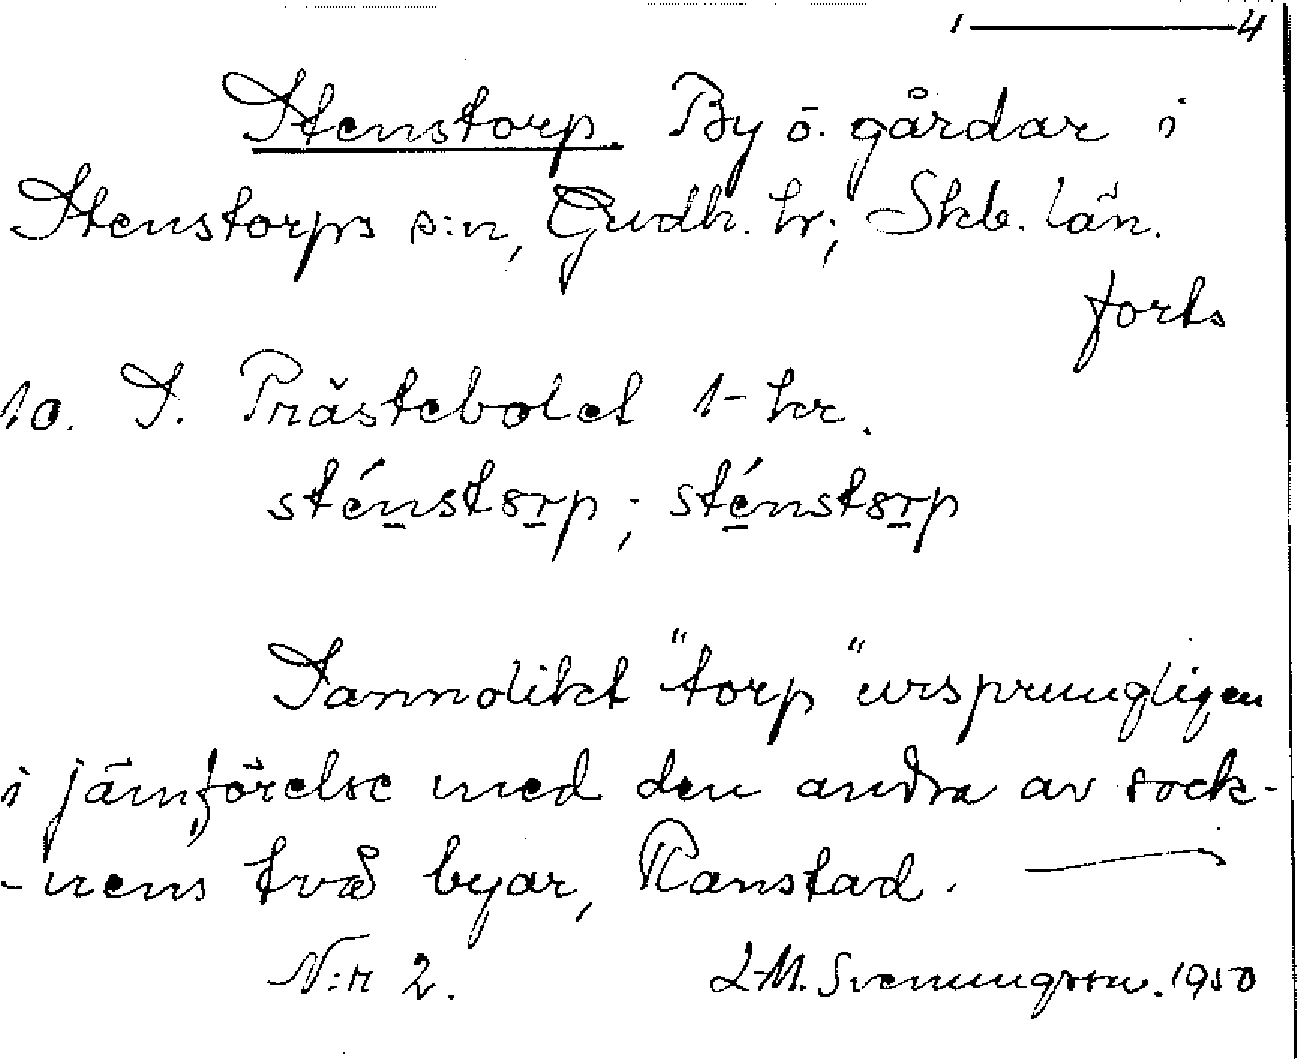 1 — 4
Stenstorp. By o. gårdar i
Stenstorps s:n, Gudh. hr; Skb. län.
forts
10. S. Prästebolet 1 - hr.
sténstorp ; sténstorp
Sannolikt "torp" ursprungligen
i jämförelse med den andra av sock-
-nens två byar, Ranstad. —
N:r 2. L-M. Svenungsson. 1950